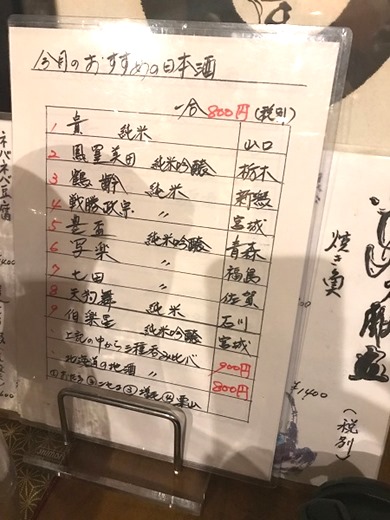 月のおすすめの日本酒
一合 800円 (税別)
1 貴 純米 山口
2 鳳凰美田 純米吟醸 栃木
3 鶴齢 純米 新潟
4 戦勝政宗 〃 宮城
5 豊盃 純米吟醸 青森
6 写楽 〃 福島
7 七田 〃 佐賀
8 天狗舞 純米 石川
9 伯楽星 純米吟醸 宮城
・上記の中から三種呑み比べ 900円
・北海道の地酒 〃 800円
ネバネバ豆腐
焼き魚
¥1400
(税別)